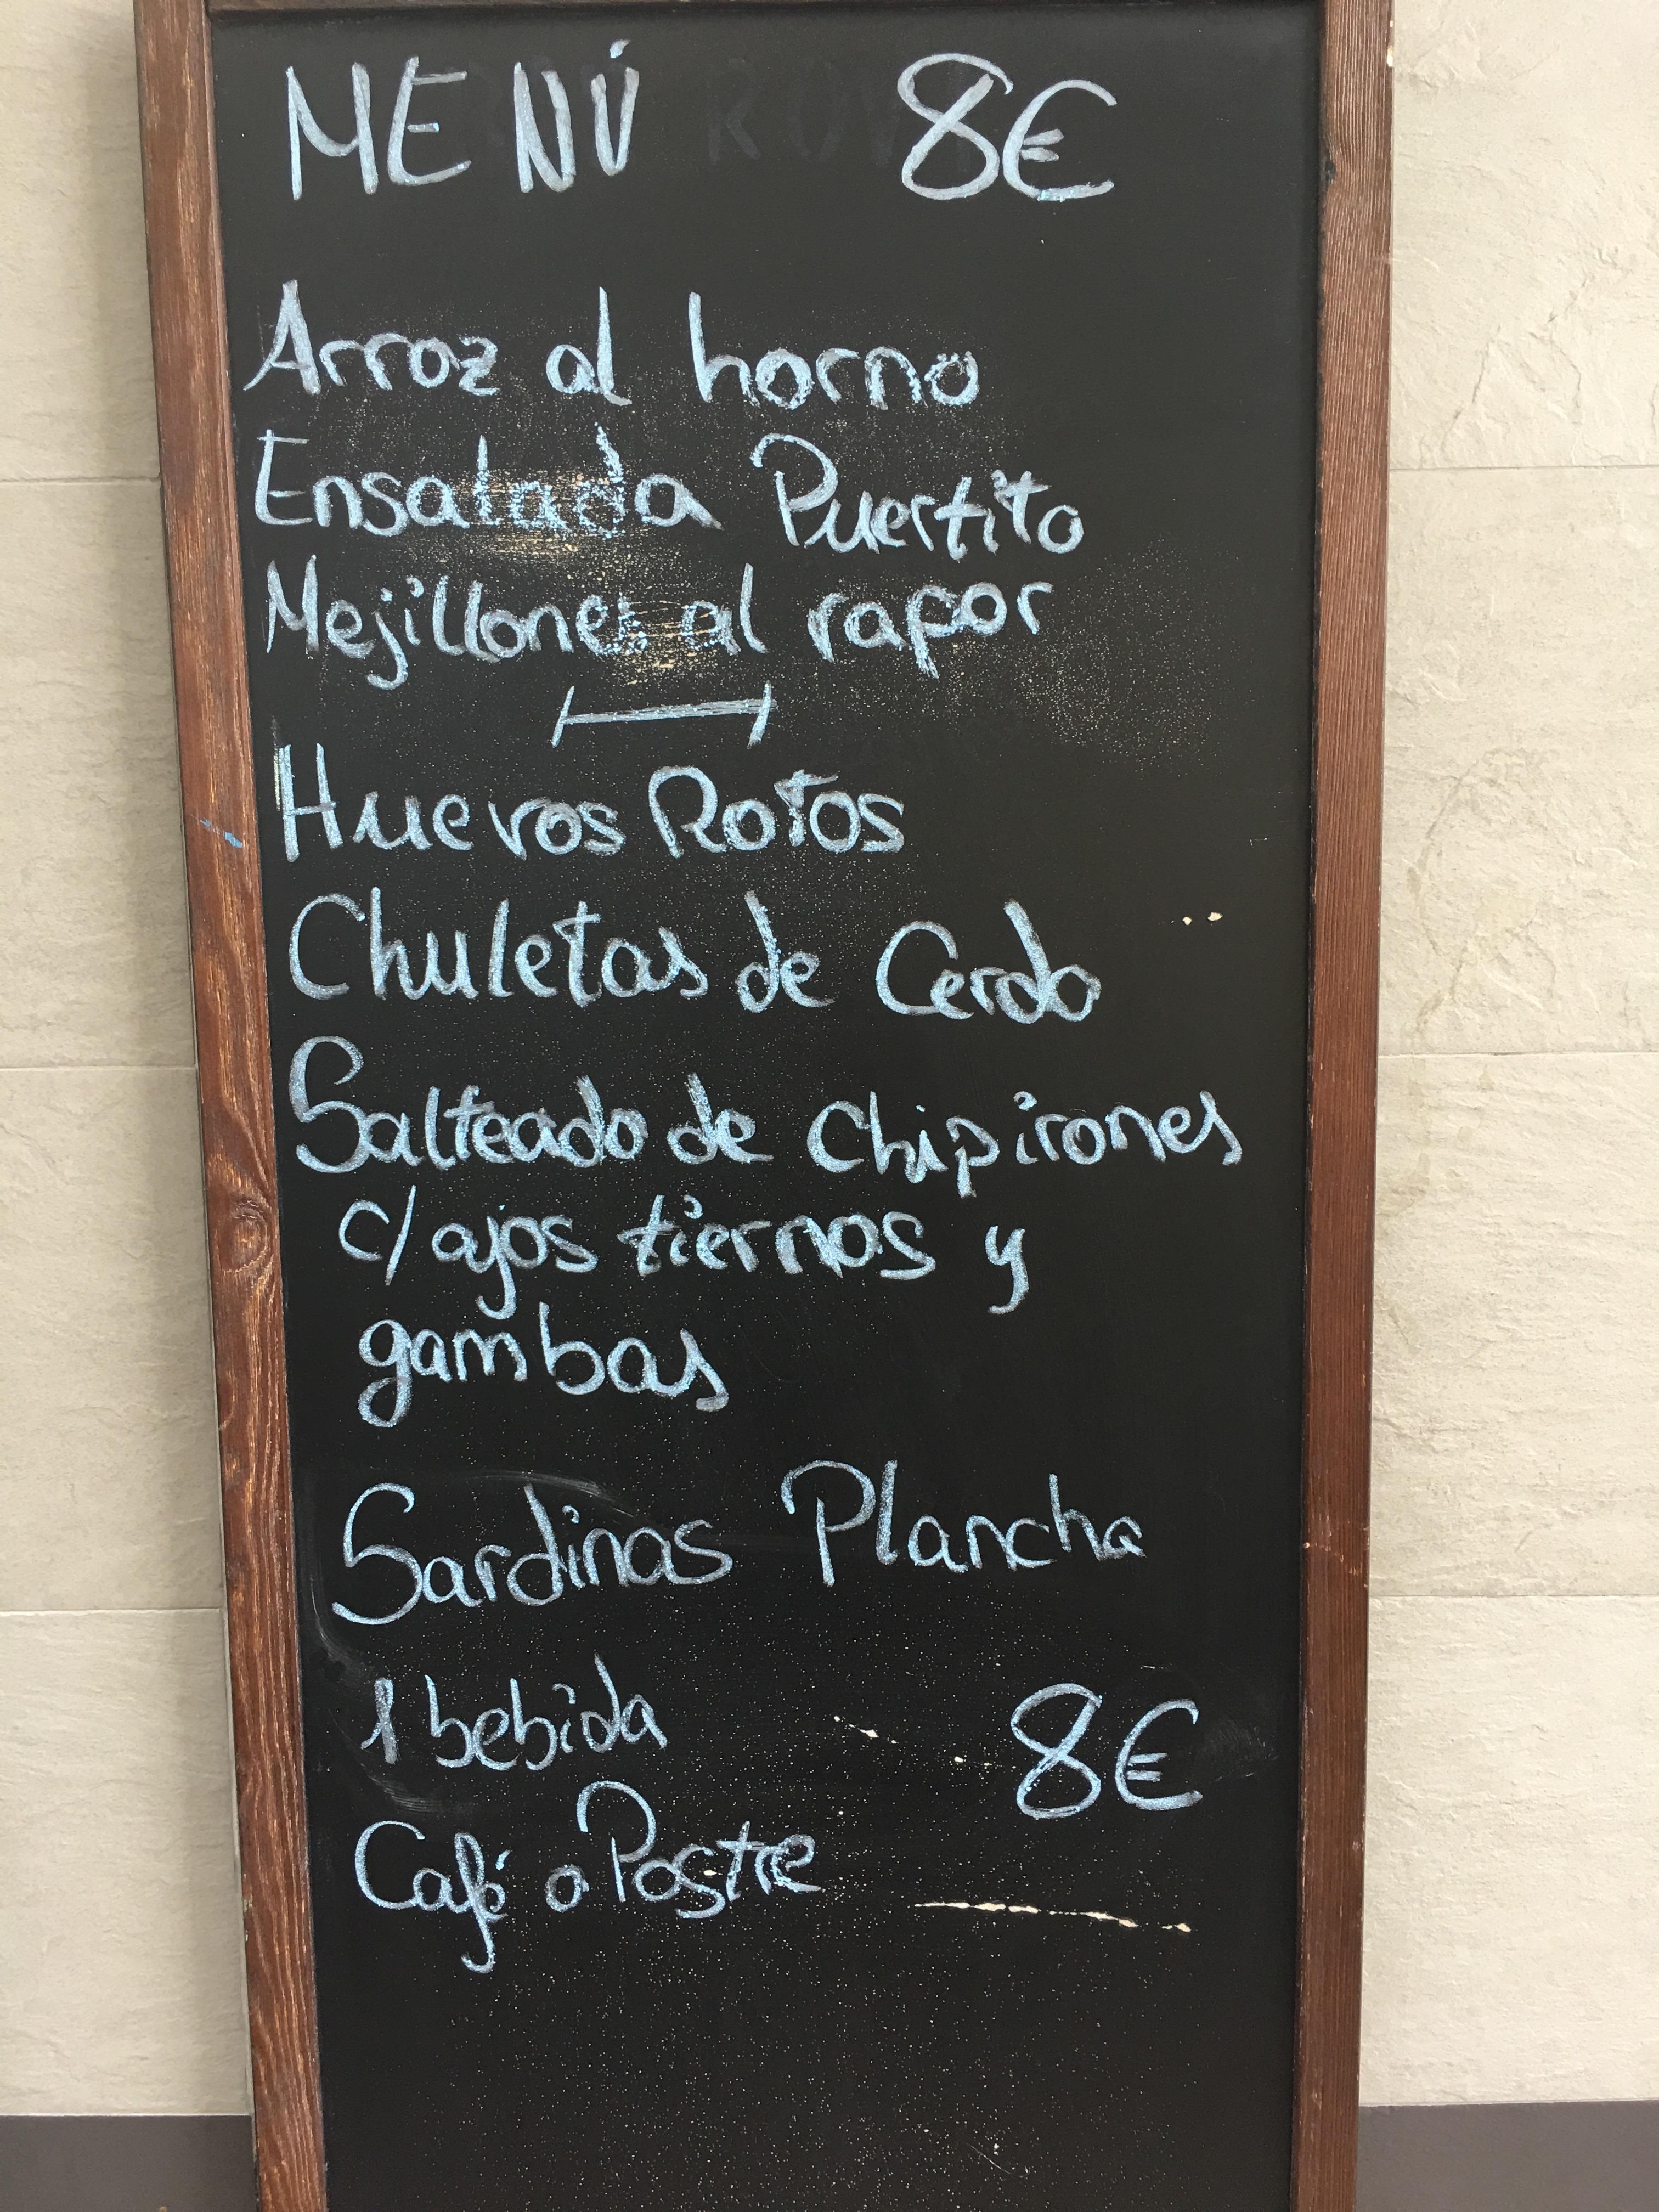 MENÚ 8€
Arroz al horno
Ensalada Puertito
Mejillones al vapor
Huevos Rotos
Chuletas de Cerdo
Salteado de Chipirones
c/ ajos tiernos y
gambas
Sardinas Plancha
1 bebida 8€
Café o Postre